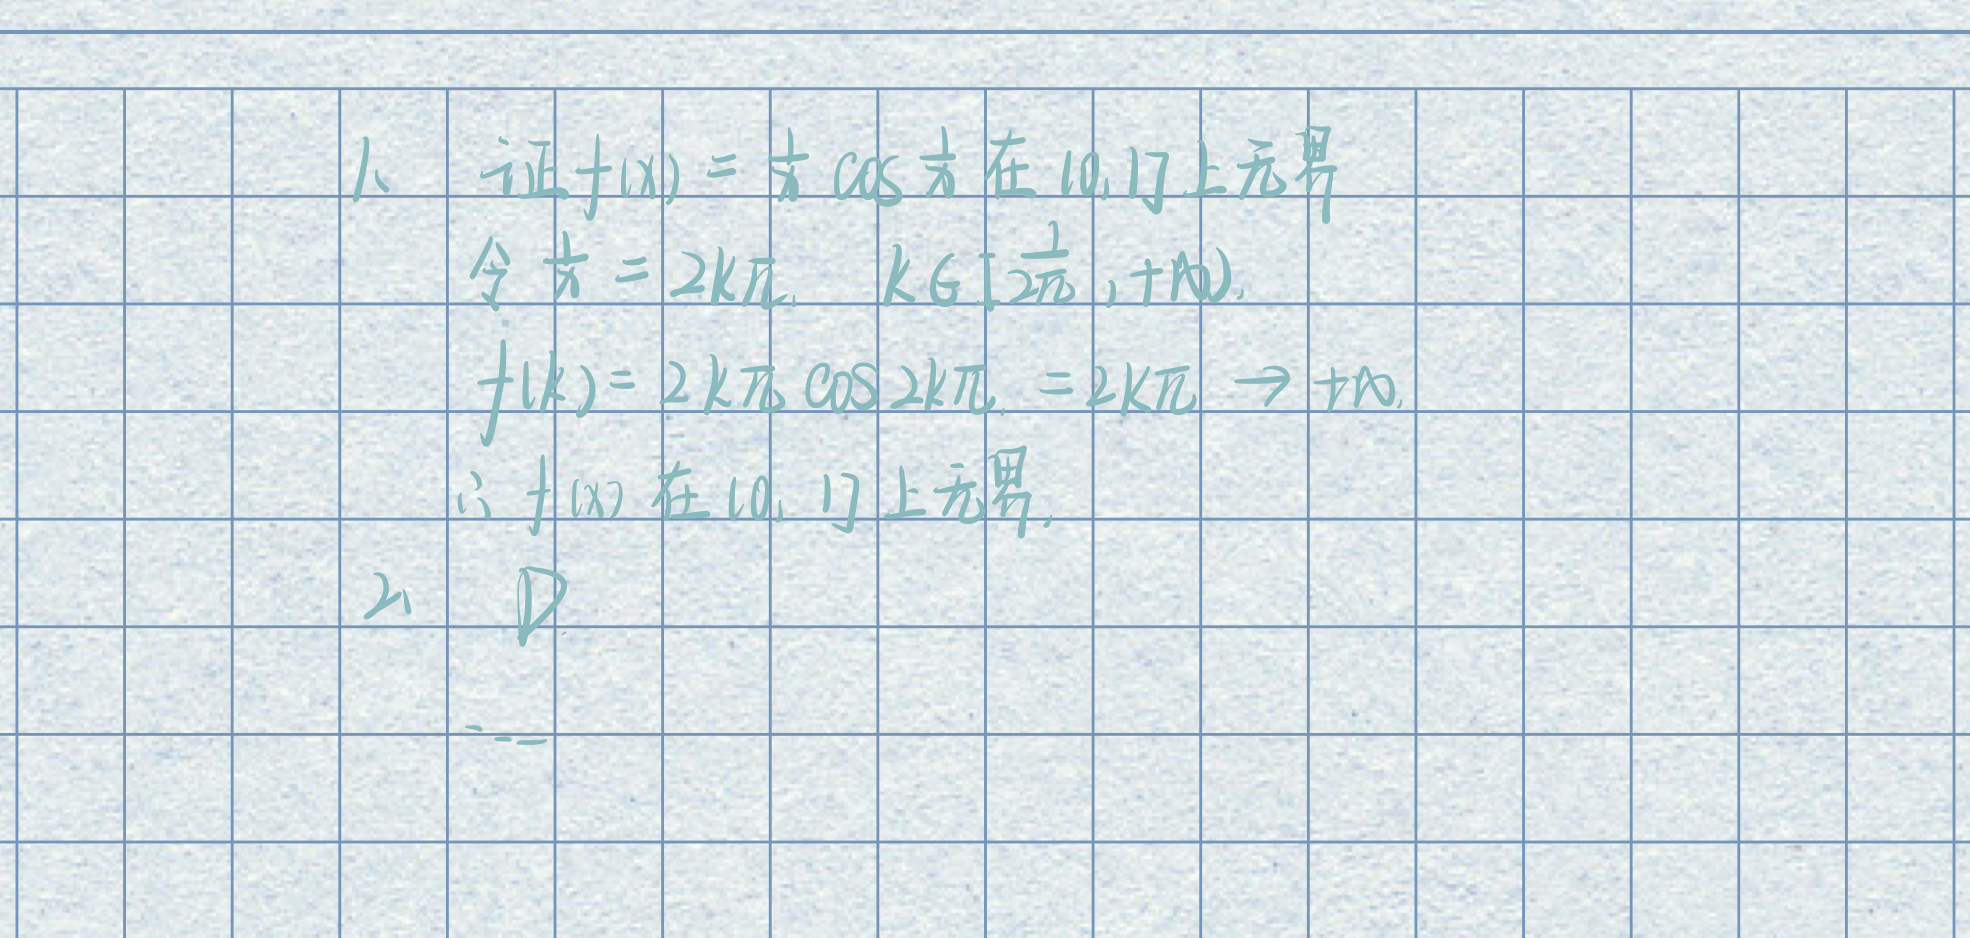 1、 证f(x) = 1/x cos 1/x 在(0,1]上无界
令 1/x = 2kπ. k∈[1/2π, +∞).
f(k) = 2kπ cos2kπ. = 2kπ → +∞.
∴ f(x) 在(0, 1]上无界.
2、 D.